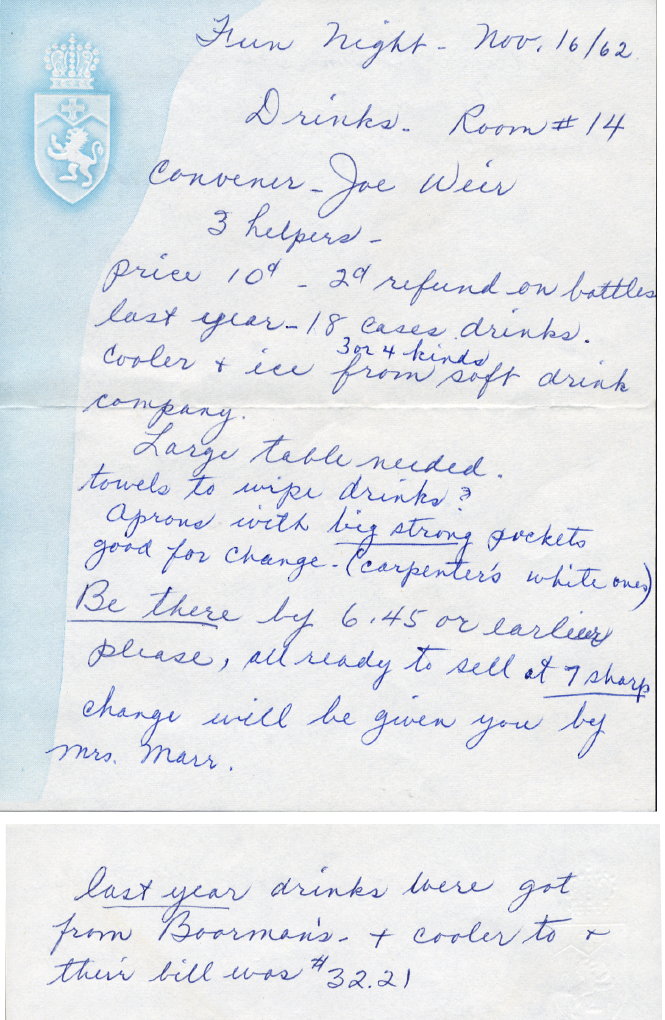 Fun Night - Nov. 16/62
Drinks - Room # 14
Convener - Joe Weir
3 helpers -
price 10¢ - 2¢ refund on bottles
last year - 18 cases drinks.
3 or 4 kinds
cooler + ice from soft drink
company.
Large table needed.
towels to wipe drinks?
Aprons with big strong pockets
good for change - (carpenter's white ones)
Be there by 6.45 or earlier
please, all ready to sell at 7 sharp
change will be given you by
Mrs. Marr.
last year drinks were got
from Boorman's - + cooler to +
their bill was # 32.21